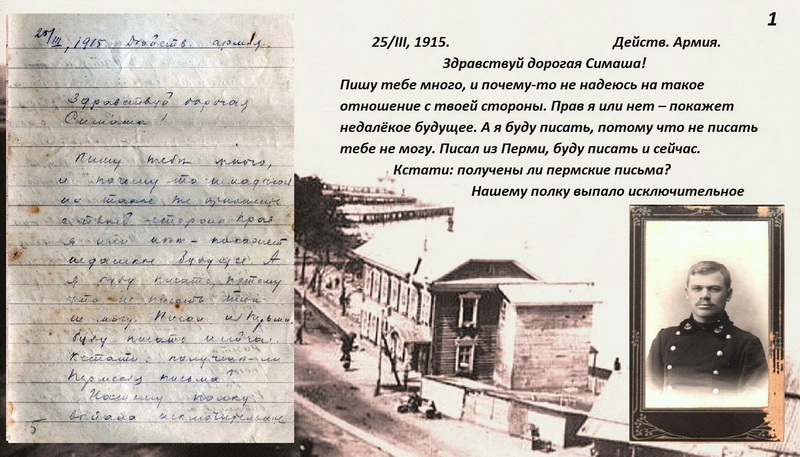 25/III, 1915. Действ. армия.
Здравствуй дорогая
Симаша!
Пишу тебе много,
и почему то не надеюсь
на такое же отношен
с твоей стороны. Прав
я или нет – покажет
недалекое будущее. А
я буду писать, потому
что не писать тебе
не могу. Писал из Перми,
буду писать и сейчас.
Кстати: получены-ли
Пермские письма?
Нашему полку
выпало исключительное
5
1
25/III, 1915. Действ. Армия.
Здравствуй дорогая Симаша!
Пишу тебе много, и почему-то не надеюсь на такое
отношение с твоей стороны. Прав я или нет – покажет
недалёкое будущее. А я буду писать, потому что не писать
тебе не могу. Писал из Перми, буду писать и сейчас.
Кстати: получены ли пермские письма?
Нашему полку выпало исключительное